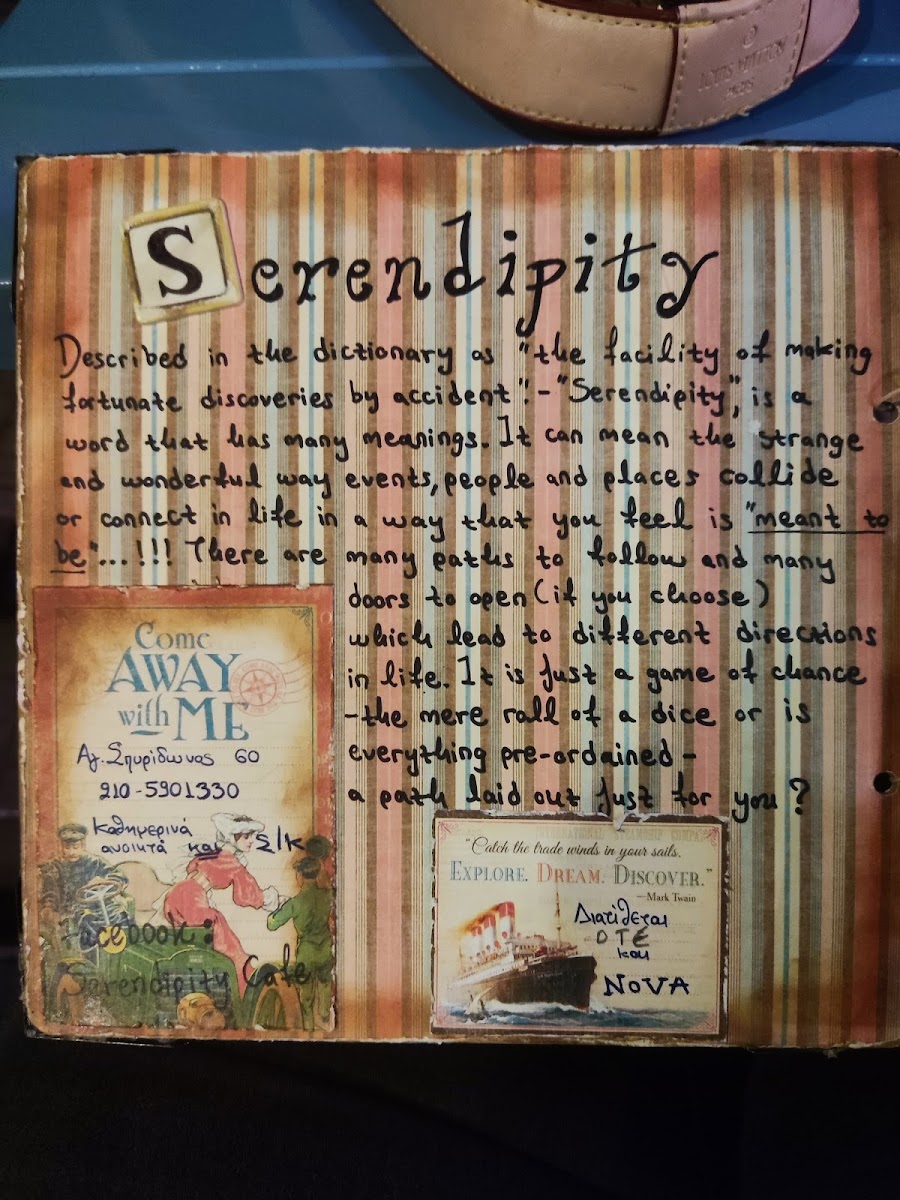 LOUIS VUITTON
Serendipity
Described in the dictionary as "the facility of making
fortunate discoveries by accident".-"Serendipity", is a
word that has many meanings. It can mean the strange
and wonderful way events, people and places collide
or connect in life in a way that you feel is "meant to
be"...!!! There are many paths to follow and many
doors to open (if you choose)
which lead to different directions
in life. It is just a game of chance
-the mere roll of a dice or is
everything pre-ordained-
a path laid out just for you?
Come
AWAY
with ME
Αγ. Σπυρίδωνος 60
210-5901330
Καθημερινά
ανοιχτά και Σ/Κ
Facebook:
Serendipity Cafe
INTERNATIONAL STEAMSHIP COMPANY
"Catch the trade winds in your sails.
EXPLORE. DREAM. DISCOVER."
—Mark Twain
Διατίθεται
ΟΤΕ
και
NOVA